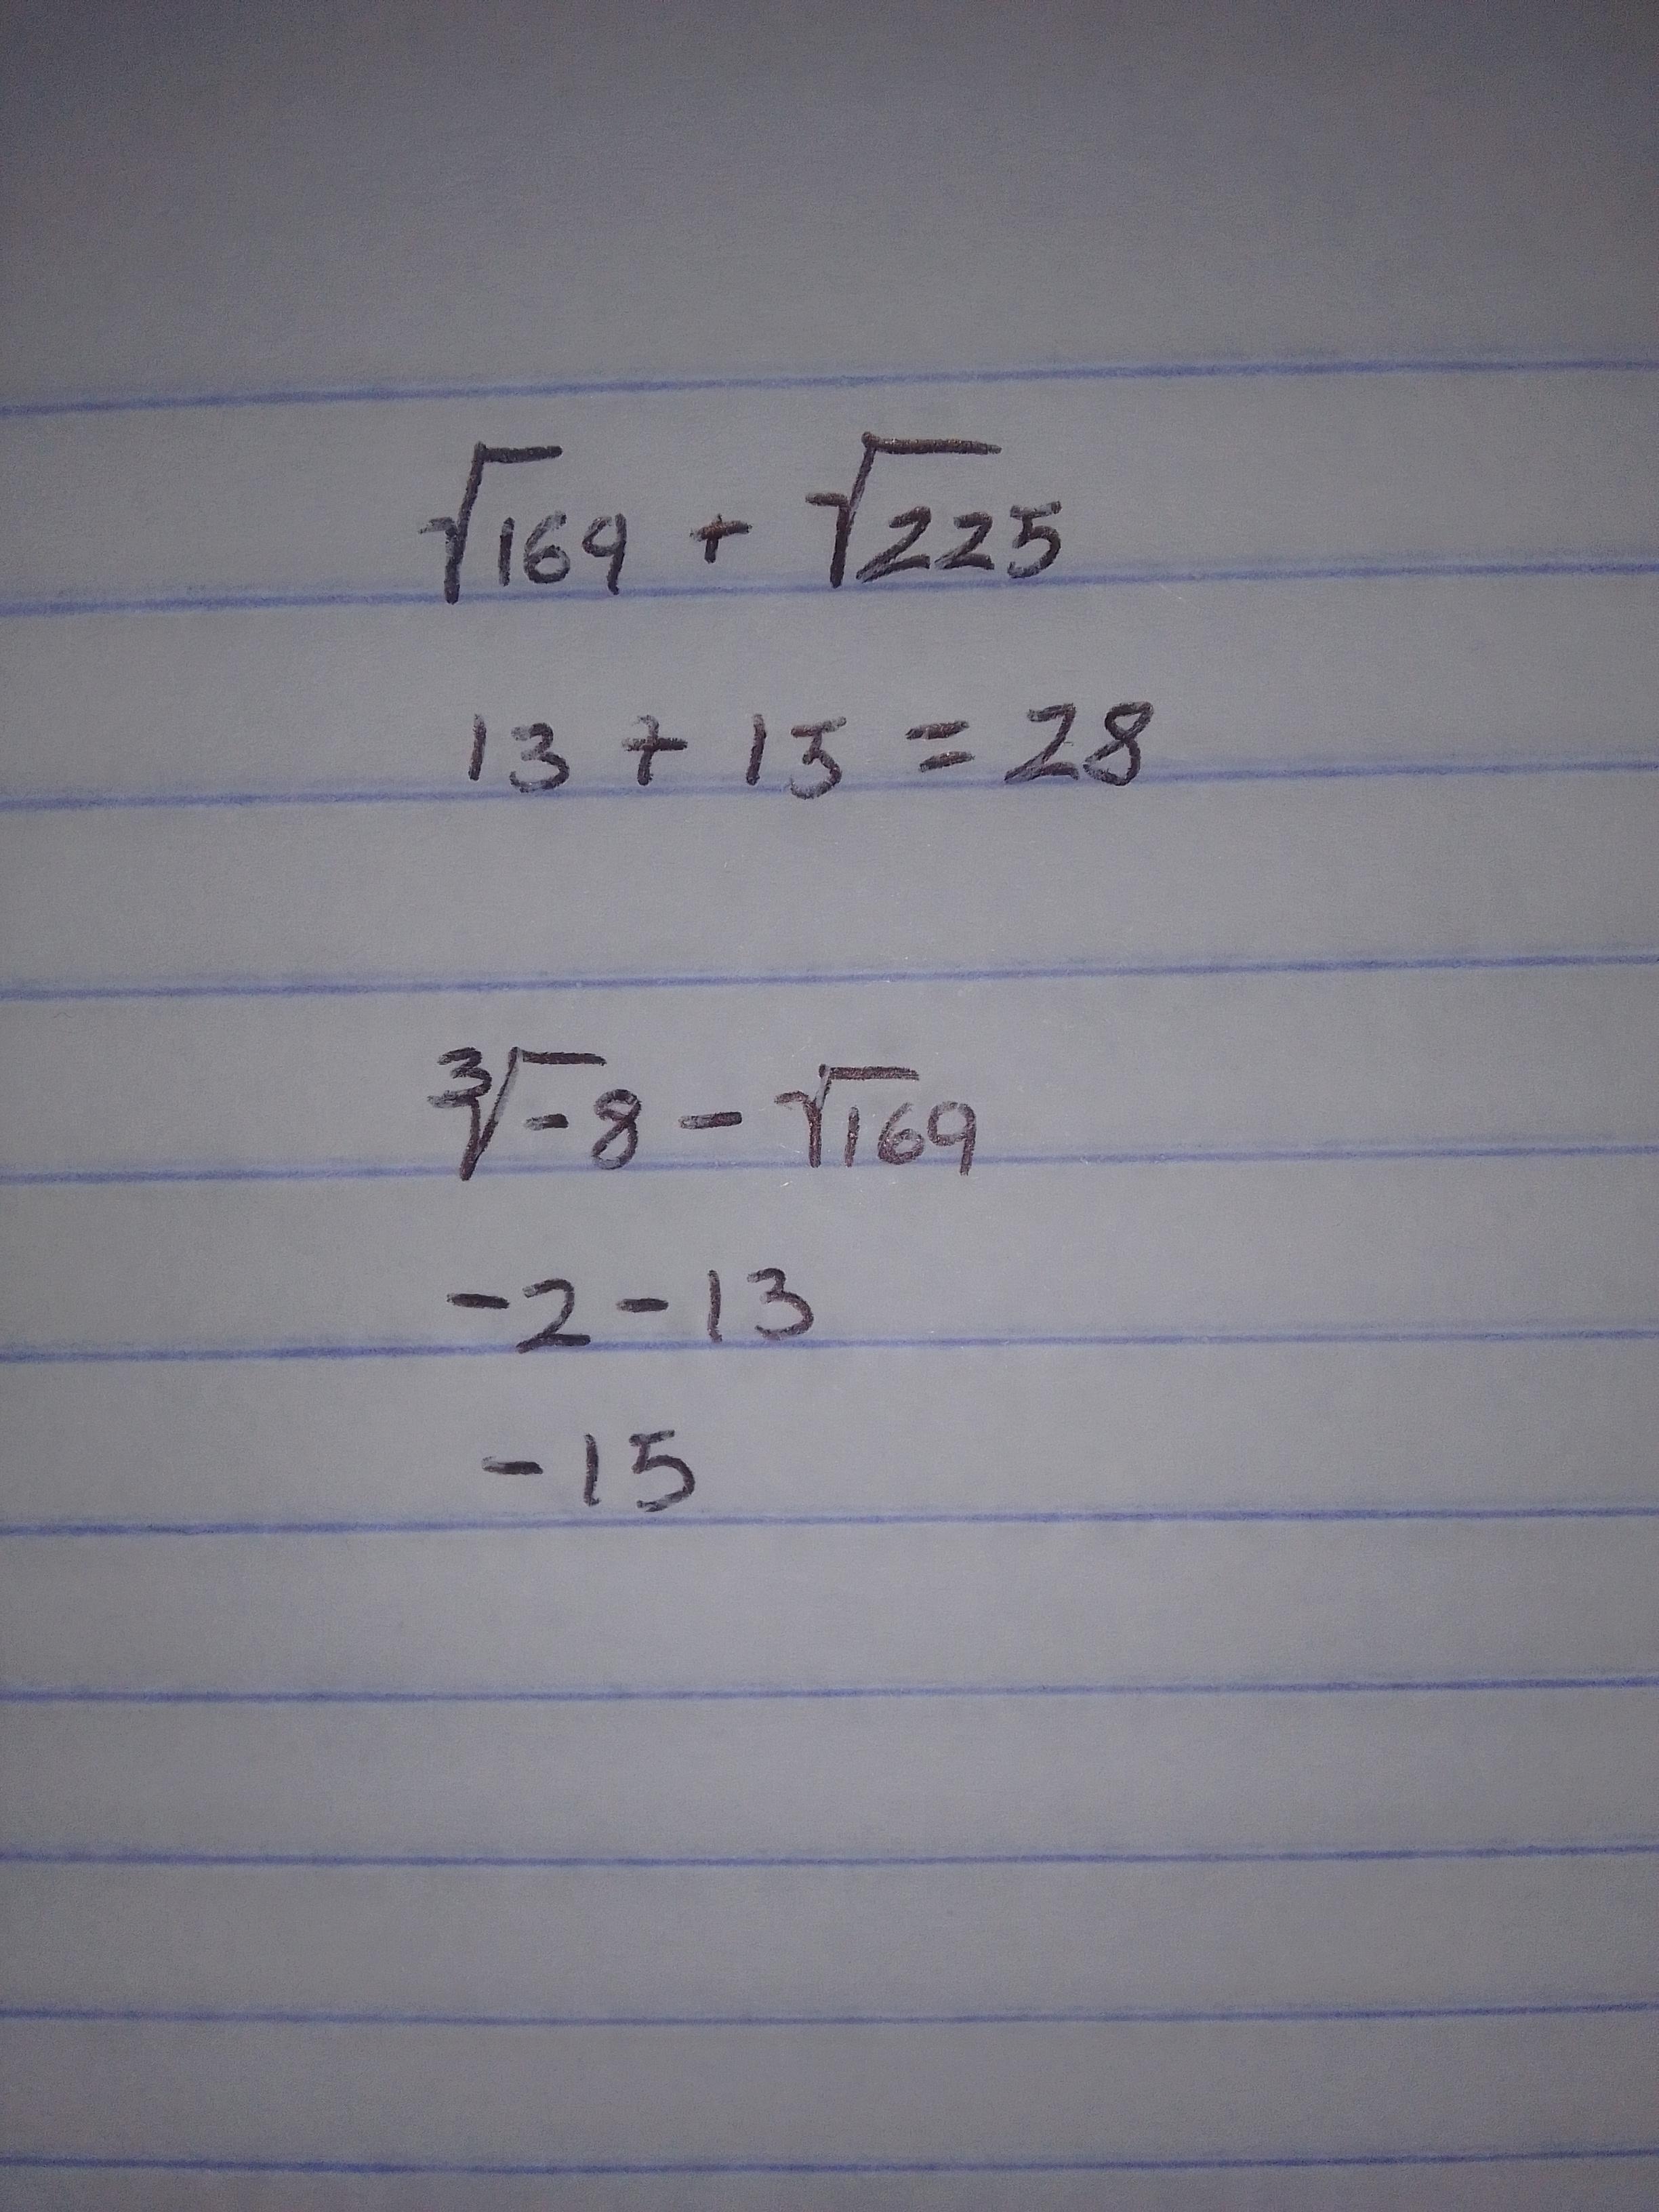 √169 + √225
13 + 15 = 28
∛-8 - √169
-2 - 13
-15